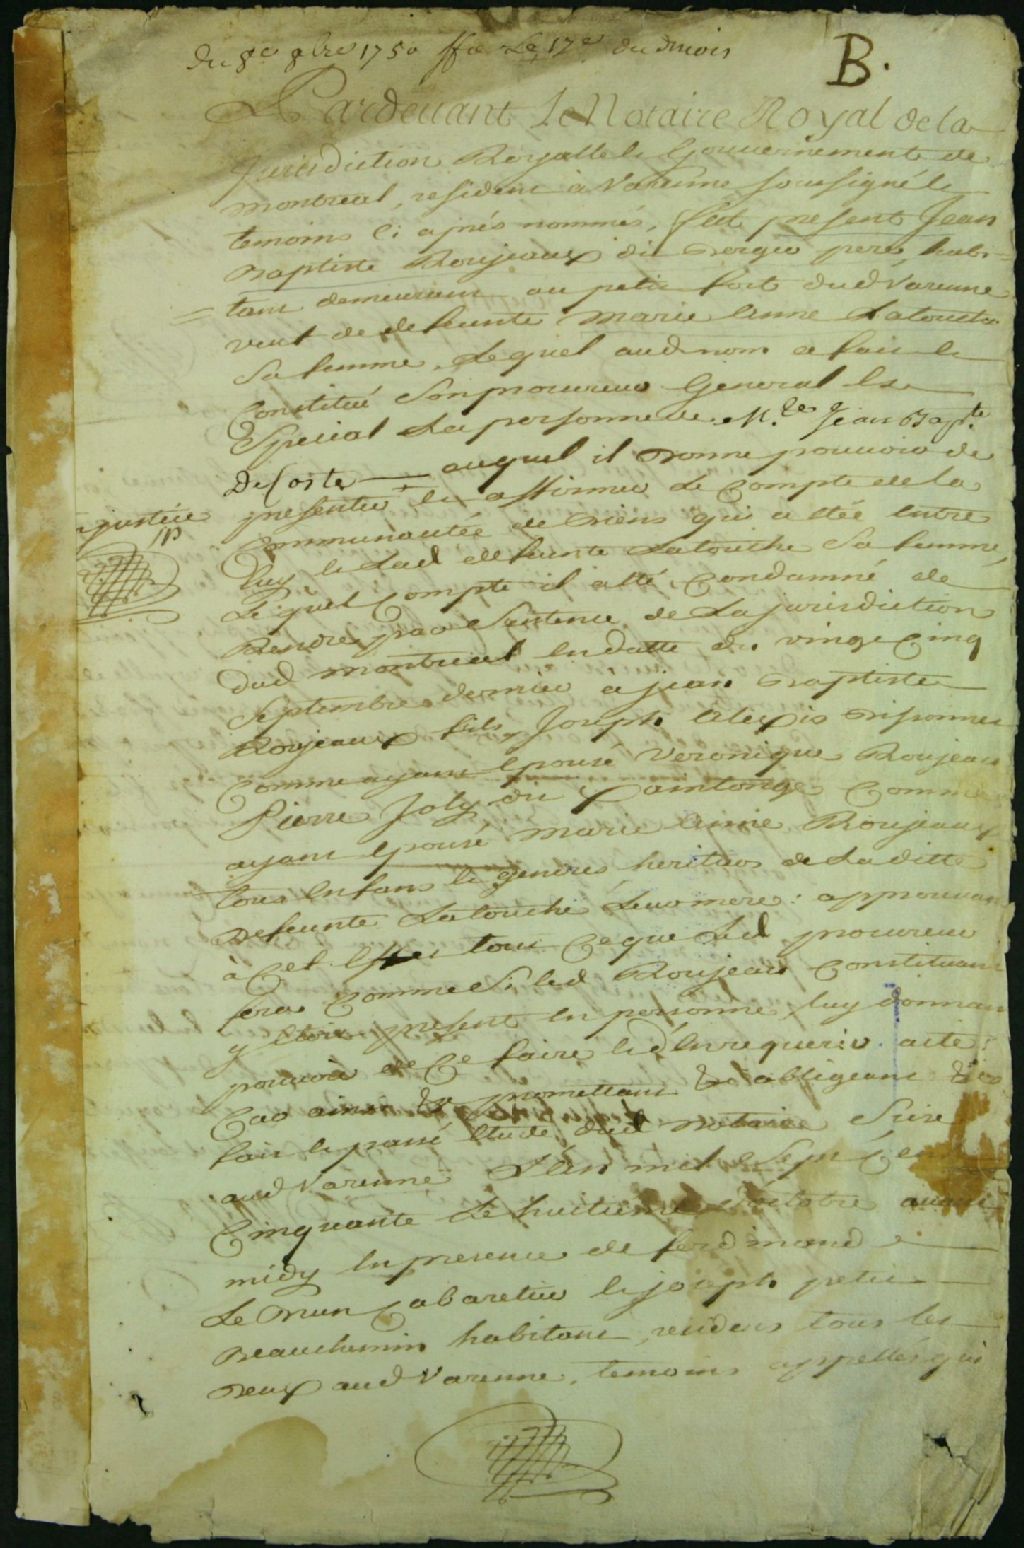 Du 8e 8bre 1750 ffe Le 17e du d mois
B.
Pardevant Le Notaire Royal de la
Jurisdiction Royalle & Gouvernement de
Montreal, resident à Varenne soussigné &
temoins Ci aprés nommés, fut present Jean
Baptiste Roujeaux dit Berger pere, habi=
=tant demeurant au petit dud Varenne
veuf de deffunte Marie Anne Latouche
Sa femme, Lequel aud nom a fait &
Constitué Son procureur General &
Special La personne de M.e Jean Bapt.te
DeCoste auquel il Donne pouvoir de
presenter + & affirmer Le Compte de la
Communautée de Biens qui a étée Entre
Luy & Lad deffunte Latouche Sa femme,
Lequel Compte il a été Condamné de
Rendre par Sentence de La jurisdiction
dud Montreal En datte du vingt Cinq
Septembre dernier a jean Baptiste
Roujeaux fils, Joseph Alexis
Comme ayant Epousé Veronique Roujeau
Pierre Joly dit Comme
ayant Epousé Marie Anne Roujeaux
tous Enfans & gendres heritiers de La ditte
deffunte Latouche Leur mere: approuvant
à Cet Effet tout Ce que Led procureur
fera Comme Si led Roujeau Constituant
y Etoit present En personne, luy donnant
pouvoir de Ce faire & d'En requerir acte:
Car ainsi & promettant & obligeant &
fait & passé Etude dud Notaire Size
aud Varenne L'an mil Sept Cent
Cinquante Le huitieme d'octobre avant
midy En presence de ferdinand
Le Brun Cabaretier & joseph petit
Beauchemin habitant, residens tous les
Deux aud Varenne, temoins appellés qui
justice